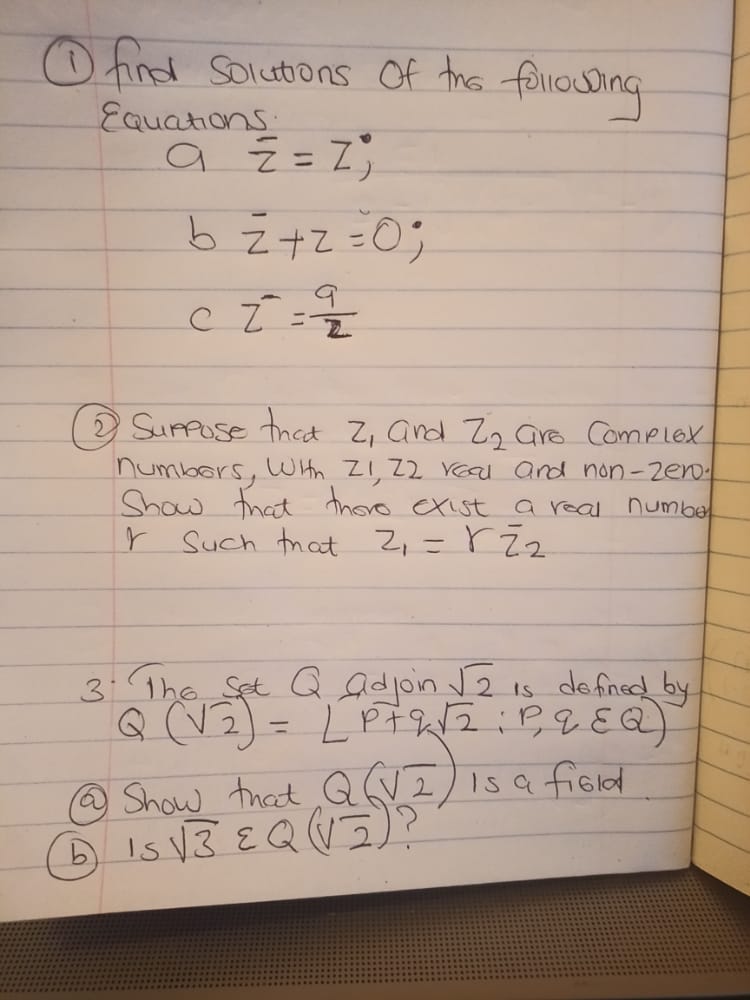 ① find Solutions Of the following
Equations.
a z̄ = z;
b z̄ + z = 0;
c z̄ = 9/z
② Suppose that z₁ and z₂ are complex
numbers, with z1, z2 real and non-zero.
Show that there exist a real number
r such that z₁ = r z̄₂
3. The set Q adjoin √2 is defined by
Q (√2) = [ P+q√2 : P, q ε Q)
ⓐ Show that Q(√2) is a field.
ⓑ Is √3 ε Q(√2)?